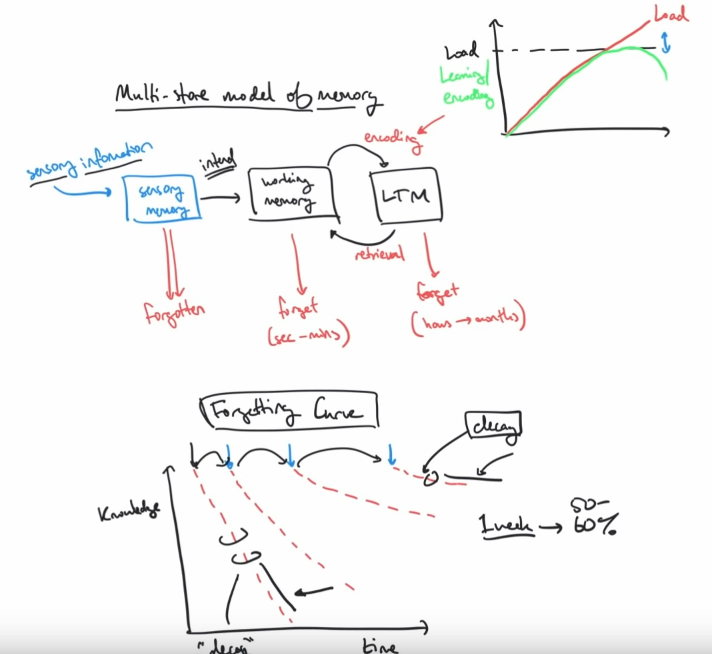 Load
Load
Learning/
encoding
Multi-store model of memory
encoding
sensory information
intend
sensory
memory
working
memory
LTM
retrieval
forgotten
forget
(sec-mins)
forget
(hours → months)
Forgetting Curve
decay
Knowledge
1 week → 50-
60%
"decay"
time